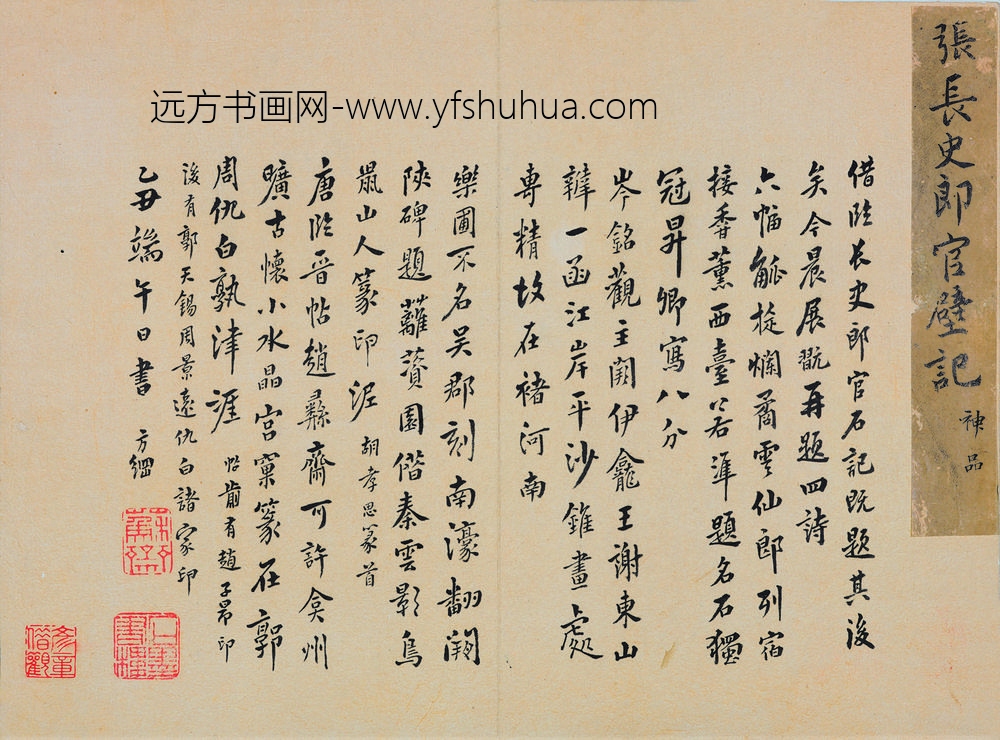 張長史郎官壁記
神品
远方书画网-www.yfshuhua.com
借臨長史郎官石記既題其後
矣今晨展翫再題四詩
六幅觚棱爛矞雲仙郎列宿
接香薰西臺若準題名石獨
冠昇卿寫八分
岑銘觀主闕伊龕王謝東山
辨一函江岸平沙錐畫處
專精故在褚河南
樂圃不名吳郡刻南濠翻闕
陝碑題蘿薋園偕秦雲影烏
鼠山人篆印泥 胡孝思篆首
唐臨晋帖趙彝齋可許弇州
曠古懷小水晶宮窠篆在郭
周仇白孰津涯 帖前有趙子昂印
後有郭天錫周景遠仇白諸家印
乙丑端午日書 方綱